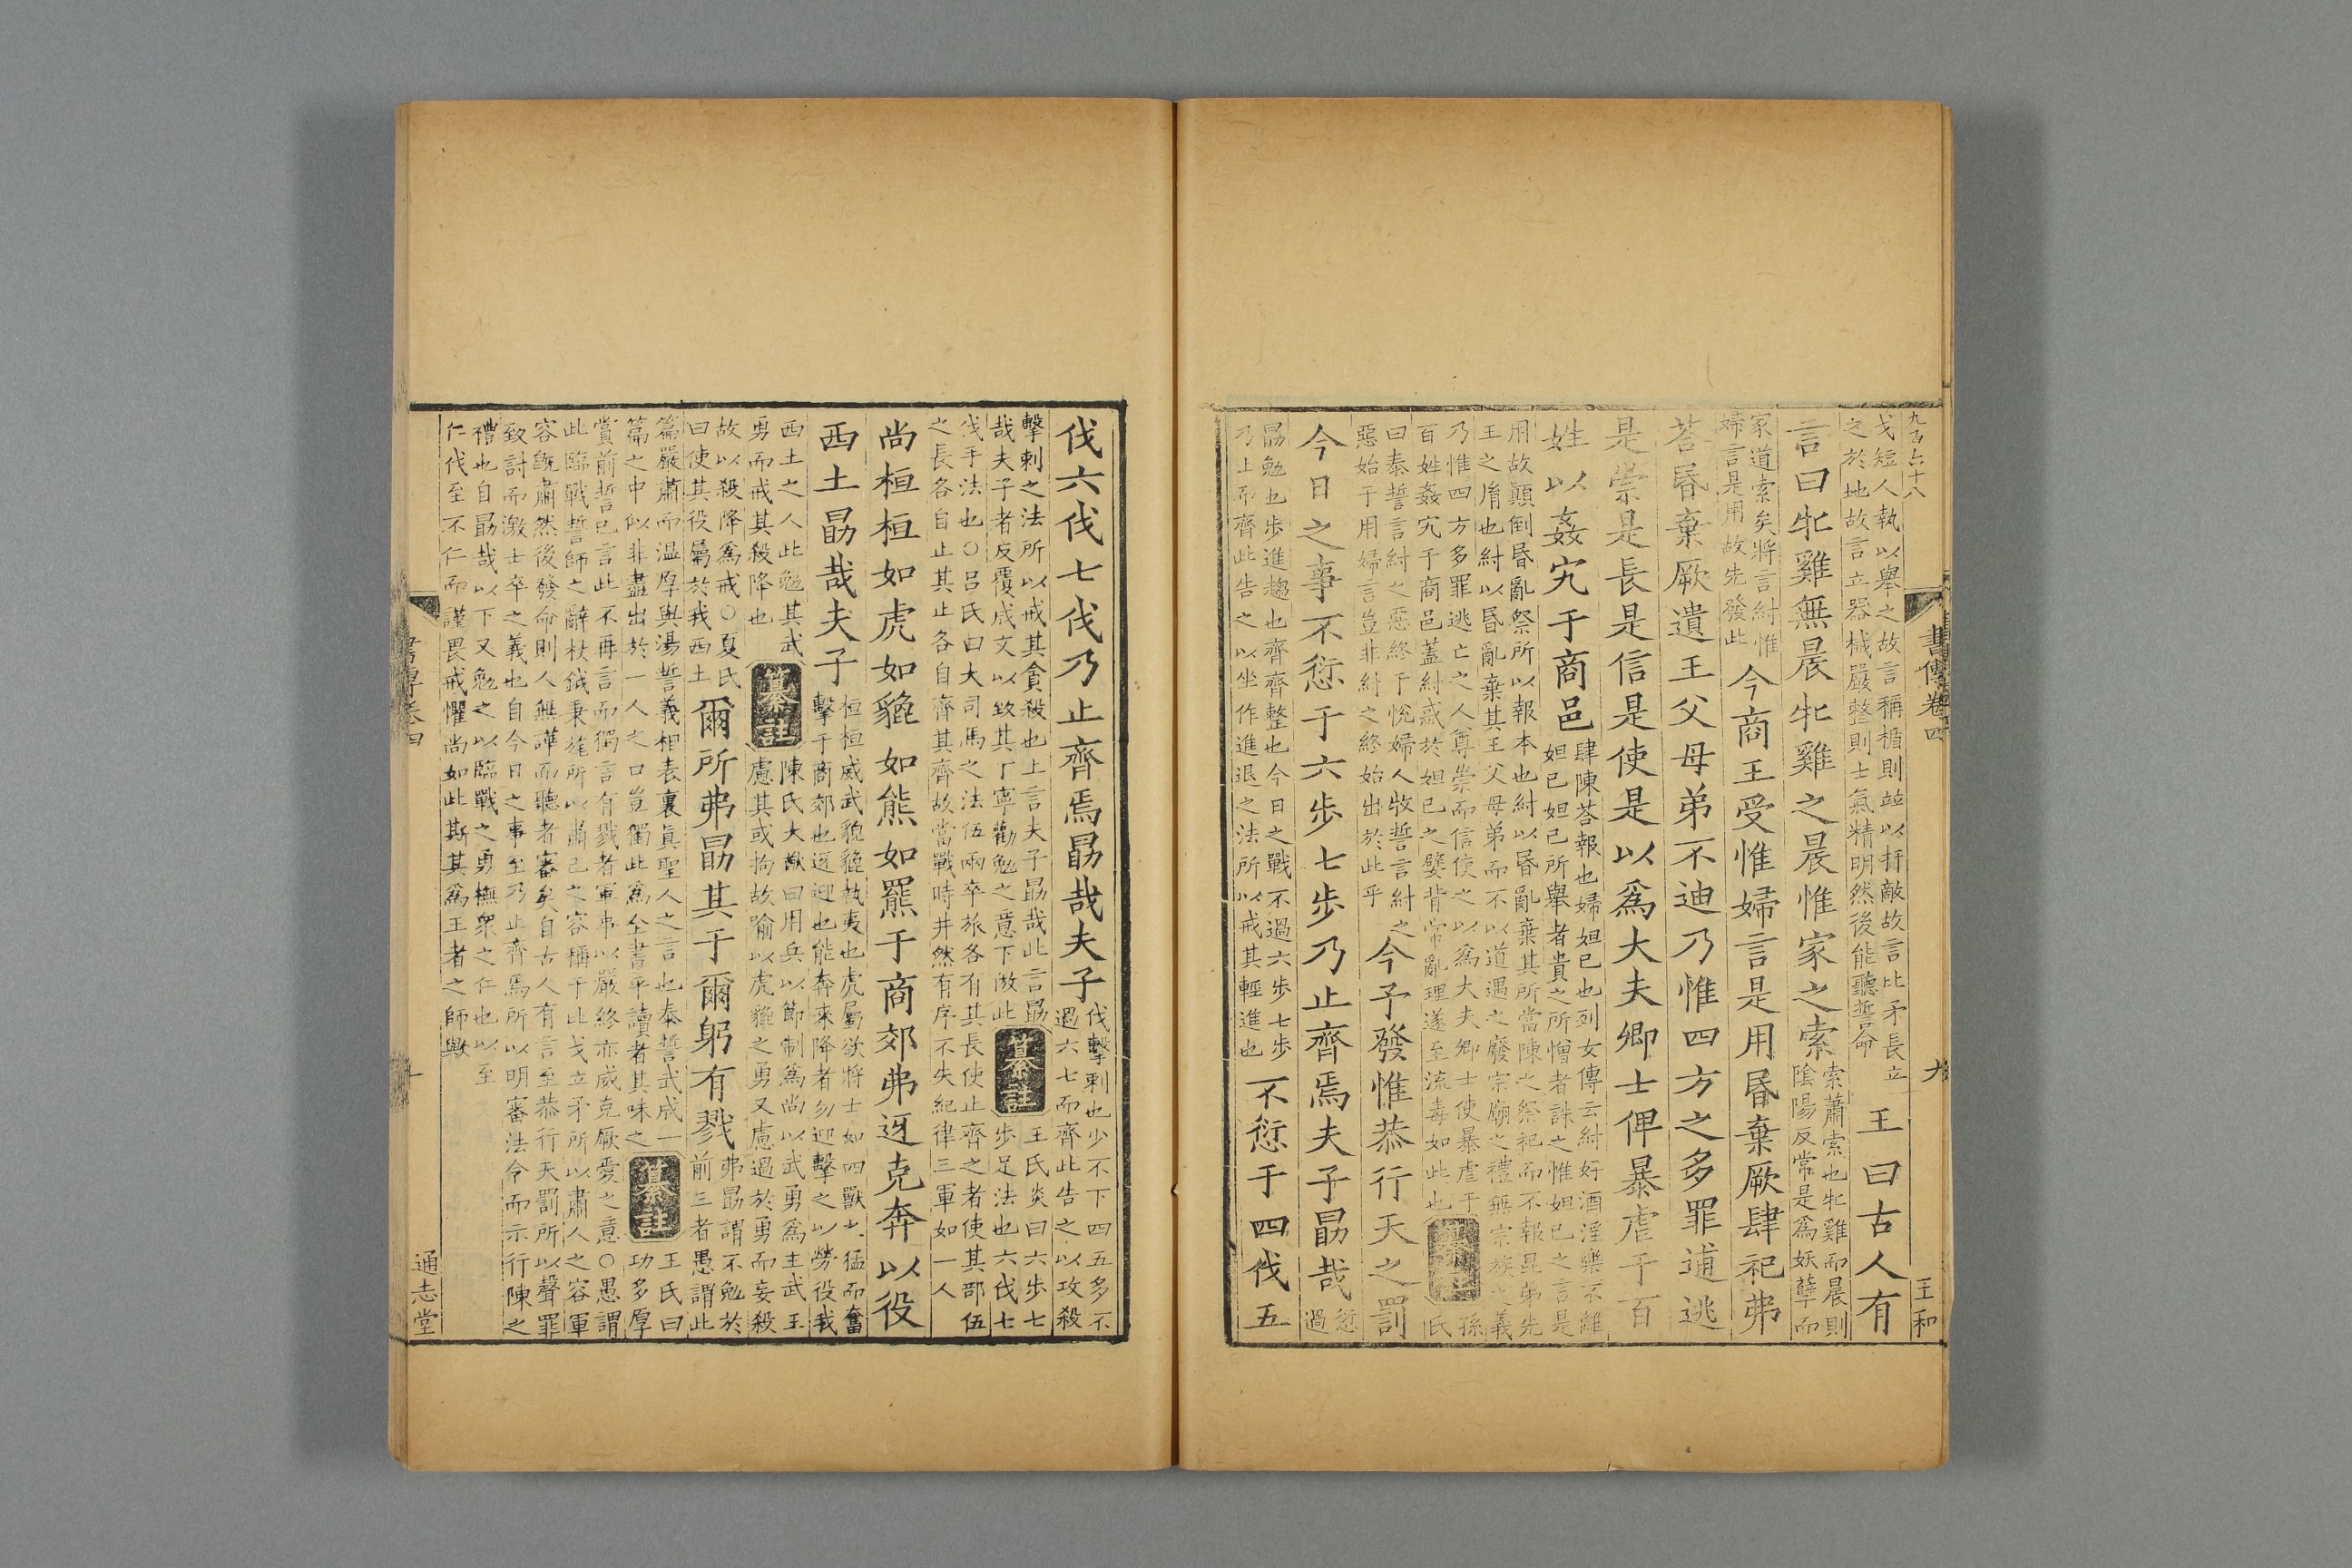 九百六十八
書傳卷四
九
王和
戈短人執以舉之故言稱楯則竝以扞敵故言比矛長立
之於地故言立器械嚴整則士氣精明然後能聽誓命
王曰古人有
言曰牝雞無晨牝雞之晨惟家之索
索蕭索也牝雞而晨則
陰陽反常是爲妖孽而
家道索矣將言紂惟
婦言是用故先發此
今商王受惟婦言是用昬棄厥肆祀弗
荅昬棄厥遺王父母弟不迪乃惟四方之多罪逋逃
是崇是長是信是使是以爲大夫卿士俾暴虐于百
姓以姦宄于商邑
肆陳荅報也婦妲己也列女傳云紂好酒淫樂不離
妲己妲己所舉者貴之所憎者誅之惟妲己之言是
用故顚倒昬亂祭所以報本也紂以昬亂棄其所當陳之祭祀而不報昆弟先
王之胤也紂以昬亂棄其王父母弟而不以道遇之廢宗廟之禮無宗族之義
乃惟四方多罪逃亡之人尊崇而信使之以爲大夫卿士使暴虐于
百姓姦宄于商邑蓋紂惑於妲己之嬖背常亂理遂至流毒如此也
纂註
孫
氏
曰泰誓言紂之惡終于悅婦人牧誓言紂之
惡始于用婦言豈非紂之終始出於此乎
今予發惟恭行天之罰
今日之事不愆于六步七步乃止齊焉夫子勗哉
愆
過
勗勉也步進趨也齊齊整也今日之戰不過六步七步
乃止而齊此告之以坐作進退之法所以戒其輕進也
不愆于四伐五
伐六伐七伐乃止齊焉勗哉夫子
伐擊刺也少不下四五多不
過六七而齊此告之以攻殺
擊刺之法所以戒其貪殺也上言夫子勗哉此言勗
哉夫子者反覆成文以致其丁寧勸勉之意下倣此
纂註
王氏炎曰六步七
步足法也六伐七
伐手法也○呂氏曰大司馬之法伍兩卒旅各有其長使止齊之者使其部伍
之長各自止其止各自齊其齊故當戰時井然有序不失紀律三軍如一人
尚桓桓如虎如貔如熊如羆于商郊弗迓克奔以役
西土勗哉夫子
桓桓威武貌貔執夷也虎屬欲將士如四獸之猛而奮
擊于商郊也迓迎也能奔來降者勿迎擊之以勞役我
西土之人此勉其武
勇而戒其殺降也
纂註
陳氏大猷曰用兵以節制爲尚以武勇爲主武王
慮其或拘故喻以虎貔之勇又慮過於勇而妄殺
故以殺降爲戒○夏氏
曰使其役屬於我西土
爾所弗勗其于爾躬有戮
弗勗謂不勉於
前三者愚謂此
篇嚴肅而溫厚與湯誓義相表裏眞聖人之言也泰誓武成一
篇之中似非盡出於一人之口豈獨此爲全書乎讀者其味之
纂註
王氏曰
功多厚
賞前誓已言此不再言而獨言有戮者軍事以嚴終亦威克厥愛之意○愚謂
此臨戰誓師之辭杖鉞秉旄所以肅己之容稱干比戈立矛所以肅人之容軍
容旣肅然後發命則人無譁而聽者審矣自古人有言至恭行天罰所以聲罪
致討而激士卒之義也自今日之事至乃止齊焉所以明審法令而示行陳之
禮也自勗哉以下又勉之以臨戰之勇撫衆之仁也以至
仁伐至不仁而謹畏戒懼尚如此斯其爲王者之師歟
書傳卷四
十
通志堂